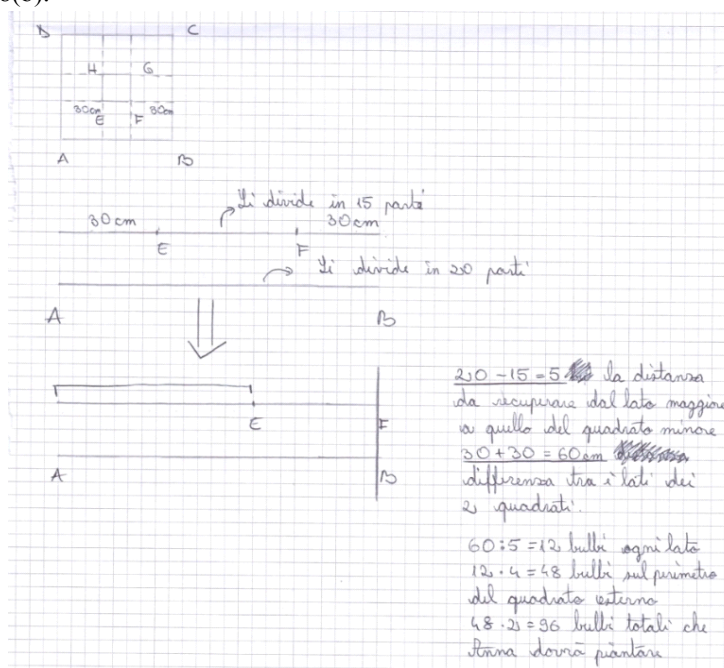 D C
H G
30cm 30cm
E F
A B
Si divide in 15 parti
30 cm 30 cm
E F
Si divide in 20 parti
A B
E F
A B
20 - 15 = 5 la distanza
da recuperare dal lato maggiore
a quello del quadrato minore
30 + 30 = 60 cm
differenza tra i lati dei
2 quadrati.
60 : 5 = 12 bulbi ogni lato
12 · 4 = 48 bulbi sul perimetro
del quadrato esterno
48 · 2 = 96 bulbi totali che
Anna dovrà piantare